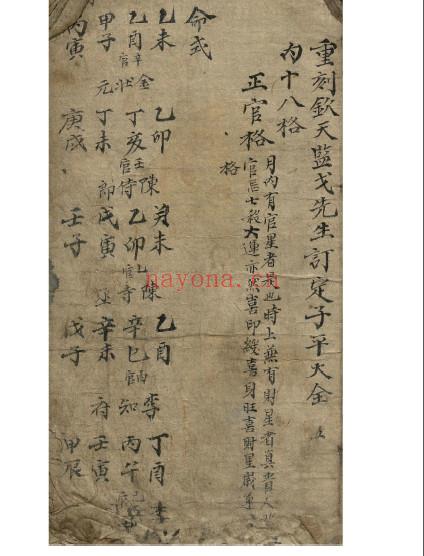 重刻欽天監戈先生訂定子平大全
內十八格
正官格
月內有官星者是也時上兼有財星者真貴人
官忌七殺大運亦然喜印綬喜身旺喜財星
格
命式
乙未 乙卯 癸未 乙酉 丁酉
金 陳 陳 李 李
乙酉 丁亥 乙卯 辛巳 丙午
辛官 壬官 官 丙官 己官
狀元 侍郎 寺丞 知府
甲子 丁未 戊寅 辛未 壬寅
丙寅 庚戌 壬子 戊子 甲辰
nayona.cn